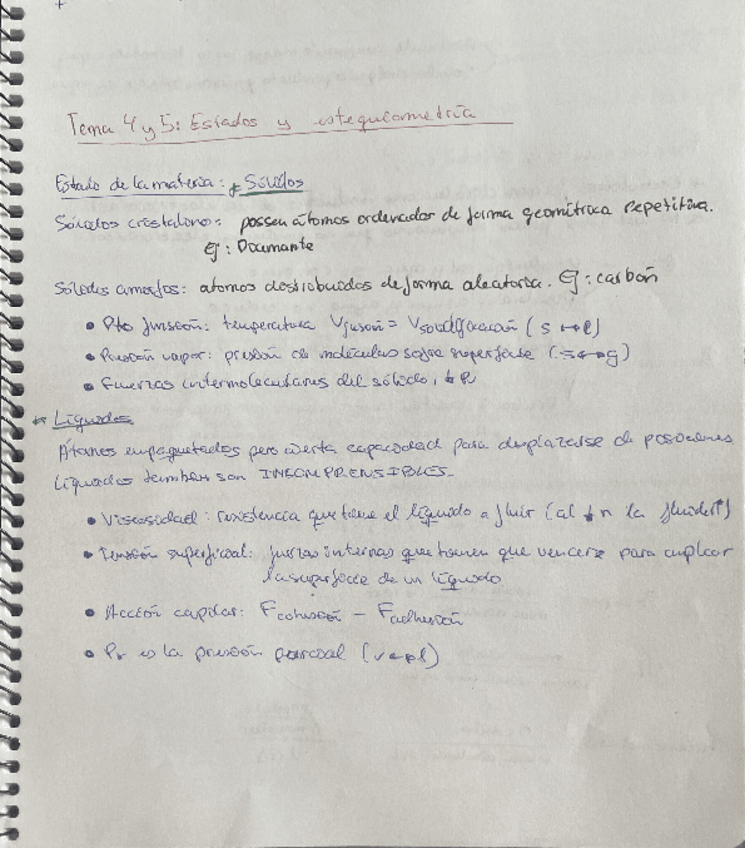 Tema 4 y 5: Estados y estequiometría
Estado de la materia: * Sólidos
Sólidos cristalinos: poseen átomos ordenados de forma geométrica repetitiva.
Ej: Diamante
Sólidos amorfos: átomos distribuidos de forma aleatoria. Ej: carbón
• Pto fusión: temperatura Vfusión = Vsolidificación (s ↔ l)
• Presión vapor: presión de moléculas sobre superficie (s ↔ g)
• Fuerzas intermoleculares del sólido, ↓ P
* Líquidos
Átomos empaquetados pero cierta capacidad para desplazarse de posiciones
Líquidos también son INCOMPRENSIBLES.
• Viscosidad: resistencia que tiene el líquido a fluir (al ↓ n la fluidez ↑)
• Tensión superficial: fuerzas internas que tienen que vencerse para ampliar
la superficie de un líquido
• Acción capilar: Fcohesión – Fadhesión
• Pv es la presión parcial (v ↔ l)